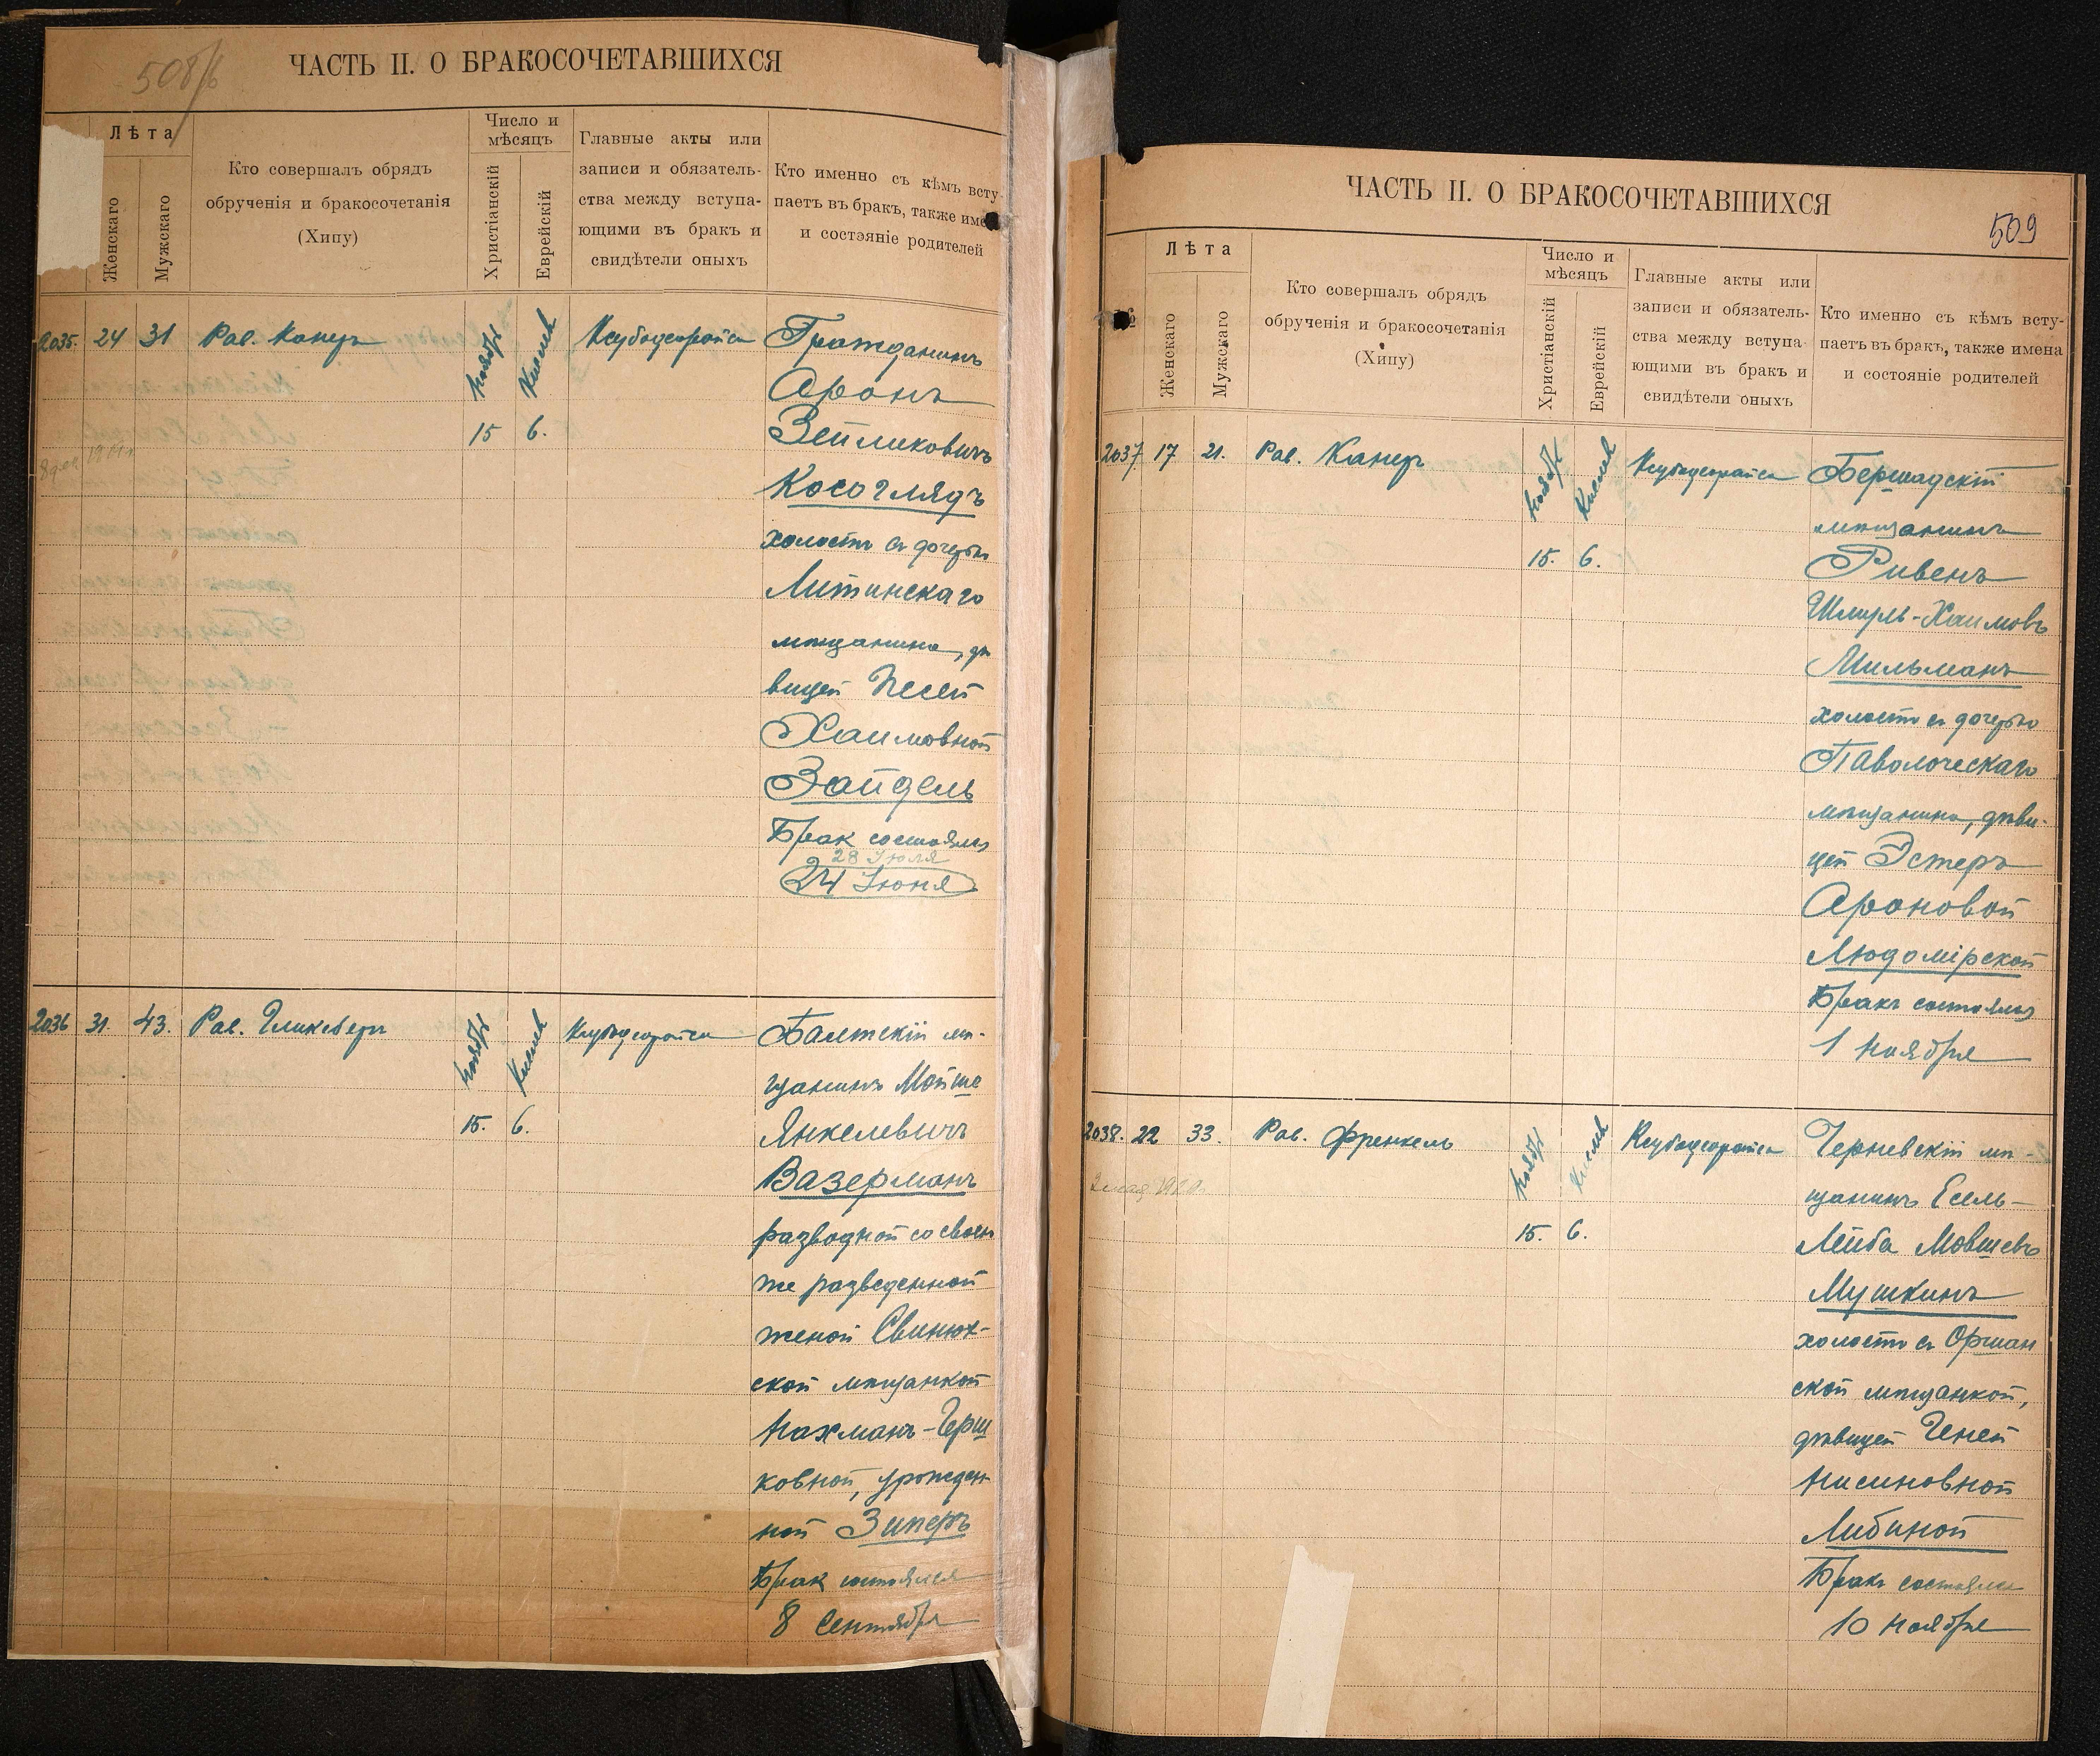 508/б
ЧАСТЬ II. О БРАКОСОЧЕТАВШИХСЯ
Лѣта
Женскаго
Мужскаго
Кто совершалъ обрядъ
обрученія и бракосочетанія
(Хипу)
Число и
мѣсяцъ
Христіанскій
Еврейскій
Главные акты или
записи и обязатель-
ства между вступа-
ющими въ бракъ и
свидѣтели оныхъ
Кто именно съ кѣмъ всту-
паетъ въ бракъ, также имена
и состояніе родителей
2035. 24 31 Рав. Канеръ Ноябрь Кислев
15 6.
Гражданинъ
Аронъ
Зейликовичъ
Косоглядъ
холостъ съ дочерью
Литинскаго
мѣщанина, дѣ
вицей Песей
Хаимовной
Зайдель
Брак состоялся
28 Іюля
24 Іюня
2036 31. 43. Рав. Гликсберг Ноябрь Кислев
15. 6.
Балтскій мѣ-
щанинъ Мойше
Янкелевичъ
Вазерманъ
разводной со своей
же разведенной
женой Свинюх-
ской мѣщанкой
Нахманъ-Герш
ковной, урожден
ной Зиперъ
Брак состоялся
8 Сентября
ЧАСТЬ II. О БРАКОСОЧЕТАВШИХСЯ
509
№
Лѣта
Женскаго
Мужскаго
Кто совершалъ обрядъ
обрученія и бракосочетанія
(Хипу)
Число и
мѣсяцъ
Христіанскій
Еврейскій
Главные акты или
записи и обязатель-
ства между вступа-
ющими въ бракъ и
свидѣтели оныхъ
Кто именно съ кѣмъ всту-
паетъ въ бракъ, также имена
и состояніе родителей
2037 17 21. Рав. Канеръ Ноябрь Кислев
15. 6.
Бершадскій
мѣщанинъ
Ривенъ
Шмуль-Хаимовъ
Мильманъ
холостъ съ дочерью
Паволоческаго
мѣщанина, дѣви-
цей Эстеръ
Ароновой
Людомірской
Бракъ состоялся
1 Ноября
2038. 22 33. Рав. Френкель Ноябрь Кислев
15. 6.
Черневскій мѣ-
щанинъ Есель-
Лейба Мовшевъ
Мушкинъ
холостъ съ Оршан
ской мѣщанкой,
дѣвицей Геней
Нисиновной
Либиной
Бракъ состоялся
10 Ноября